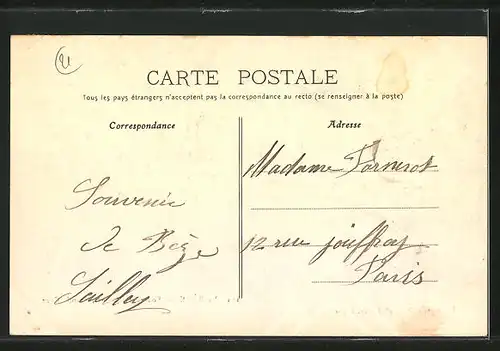 21
CARTE POSTALE
Tous les pays étrangers n'acceptent pas la correspondance au recto (se renseigner à la poste)
Correspondance
Adresse
Souvenir
de Bèze
Madame
12 rue Jouffroy
Paris